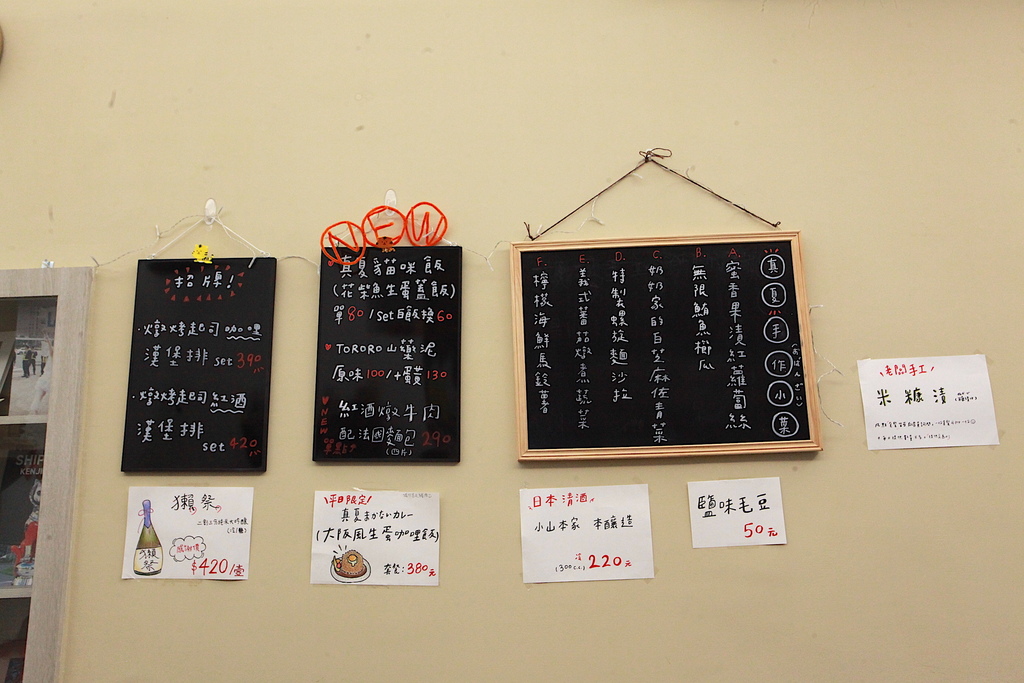 招牌!
・燉烤起司咖哩
漢堡排 set 390
・燉烤起司紅酒
漢堡排
set 420
NEW
真夏貓咪飯
(花柴魚生蛋蓋飯)
單80/set白飯換60
♥TORORO山藥泥
原味100/+蛋黃130
♥NEW
紅酒燉牛肉
配法國麵包 290
(四片)
真夏手作小菜
(おばんざい)
A.蜜香果漬紅蘿蔔絲
B.無限鮪魚櫛瓜
C.奶奶家的白芝麻佐青菜
D.特製螺旋麵沙拉
E.義式蕃茄燉煮蔬菜
F.檸檬海鮮馬鈴薯
獺祭
獺祭
感謝價
$420/壹
平日限定!
真夏まかないカレー
(大阪風生蛋咖哩飯)
套餐:380元
日本清酒
小山本家 本釀造
(300c.c.) 220元
鹽味毛豆
50元
老闆手工!
米糠漬